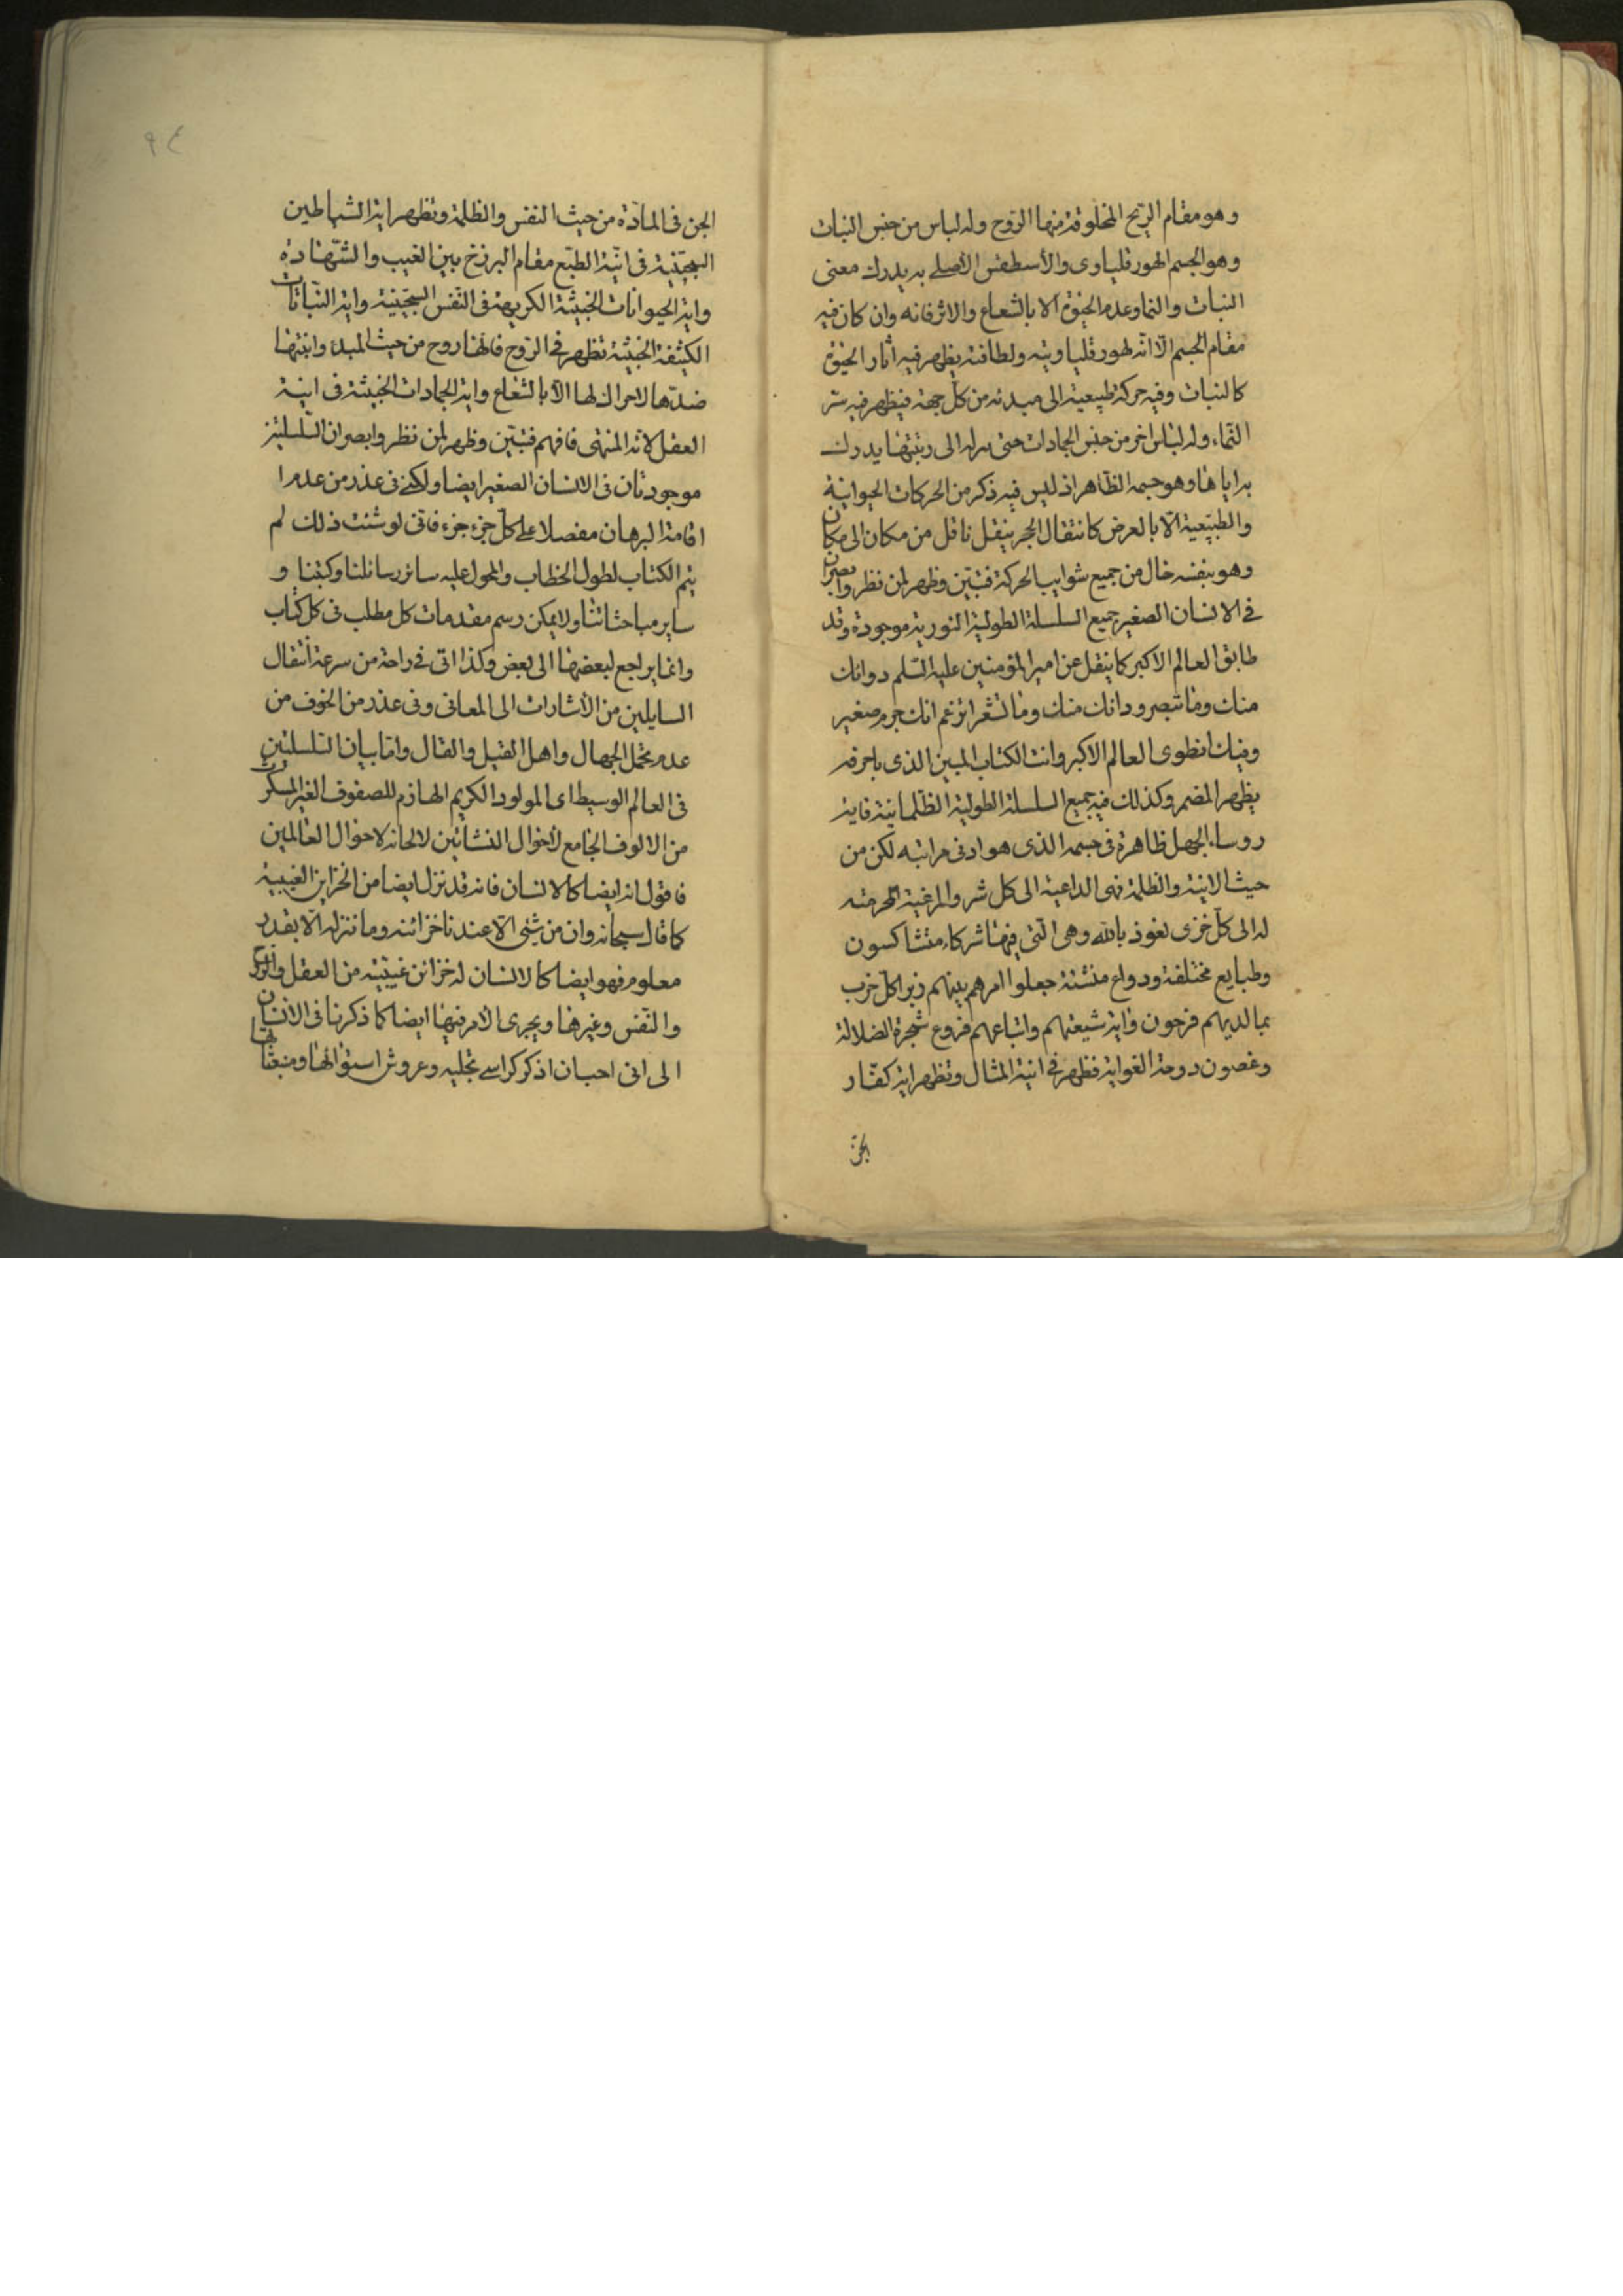 وهو مقام الريح المخلوقة منها الروح وله لباس من جنس النبات
وهو الجسم الهورقلياوى والأسطقس الأصلى به يدرك معنى
النبات والنماء وعدم الحيوة الا بالشعاع والاثر فانه وان كان فيه
مقام الجسم الّا انه لهورقلياويته ولطافته يظهر فيه اثار الحيوة
كالنبات وفيه حركة طبيعية الى مبدئه من كل جهة فيظهر فيه سرّ
النماء وله لباس اخر من جنس الجمادات حتى نزله الى رتبتها يدرك
به اياها وهو جسمه الظاهر اذ ليس فيه ذكر من الحركات الحيوانية
والطبيعية الّا بالعرض كانتقال الحجر بنقل ناقل من مكان الى مكان
وهو بنفسه خال من جميع شوايب الحركة فتبيّن وظهر لمن نظر وابصر ان
فى الانسان الصغير جميع السلسلة الطولية النورية موجودة وقد
طابق العالم الاكبر كما ينقل عن امير المؤمنين عليه السّلم دوائك
منك وما تبصر ودائك منك وما تشعر اتزعم انك جرم صغير
وفيك انطوى العالم الاكبر وانت الكتاب المبين الذى باحرفه
يظهر المضمر وكذلك فيه جميع السلسلة الطولية الظلمانية فاية
روساء الجهل ظاهرة فى جسمه الذى هو ادنى مراتبه لكن من
حيث الانية والظلمة فهى الداعية الى كل شر والمرغبة المحرمة
له الى كلّ خزى نعوذ بالله وهى التى فيها شركاء متشاكسون
وطبايع مختلفة ودواع متشتتة جعلوا امرهم بينهم زبرا كل حزب
بما لديهم فرحون واية شيعتهم واتباعهم فروع شجرة الضلالة
وغصون دوحة الغواية فظهر فى انية المثال وتظهر اية كفّار
الجنّ
٩٤
الجن فى المادّة من حيث النفس والظلمة وتظهر اية الشياطين
السجّينية فى انيّة الطبع مقام البرزخ بين الغيب والشّهادة
واية الحيوانات الخبيثة الكريهة فى النّفس السجّينية واية النّباتات
الكثيفة الخبيثة تظهر فى الروح فانها روح من حيث المبدء وانيتها
ضدّها لاحراك لها الّا بالشعاع واية الجمادات الخبيثة فى انية
العقل لانه المنتهى فافهم فتبيّن وظهر لمن نظر وابصر ان السّلسلتين
موجودتان فى الانسان الصغير ايضا ولكنى فى عذر من عدم
اقامة البرهان مفصلا على كلّ جزء جزء فانى لو شئت ذلك لم
يتم الكتاب لطول الخطاب والمحول عليه سائر رسائلنا وكتبنا و
ساير مباحثاتنا ولا يمكن رسم مقدمات كل مطلب فى كل كتاب
وانما يراجع لبعضها الى بعض وكذا انى فى راحة من سرعة انتقال
السايلين من الأشارات الى المعانى وفى عذر من الخوف من
عدم تحمل الجهال واهل القيل والقال واما بيان السّلسلتين
فى العالم الوسيط اى المولود الكريم الهازم للصفوف الغير المسكرات
من الالوف الجامع لأحوال النشاتين لا لحانه لاحوال العالمين
فاقول انه ايضا كالانسان فانه قد نزل ايضا من الخزاين الغيبية
كما قال سبحانه وان من شىء الّا عندنا خزائنه وما ننزله الّا بقدر
معلوم فهو ايضا كالانسان له خزائن غيبيّة من العقل والروح
والنّفس وغيرها ويجرى الأمر فيها ايضا كما ذكرنا فى الانسان
الى انى احب ان اذكر كراسى تجليه وعروش استوائها ومنبعثاتها